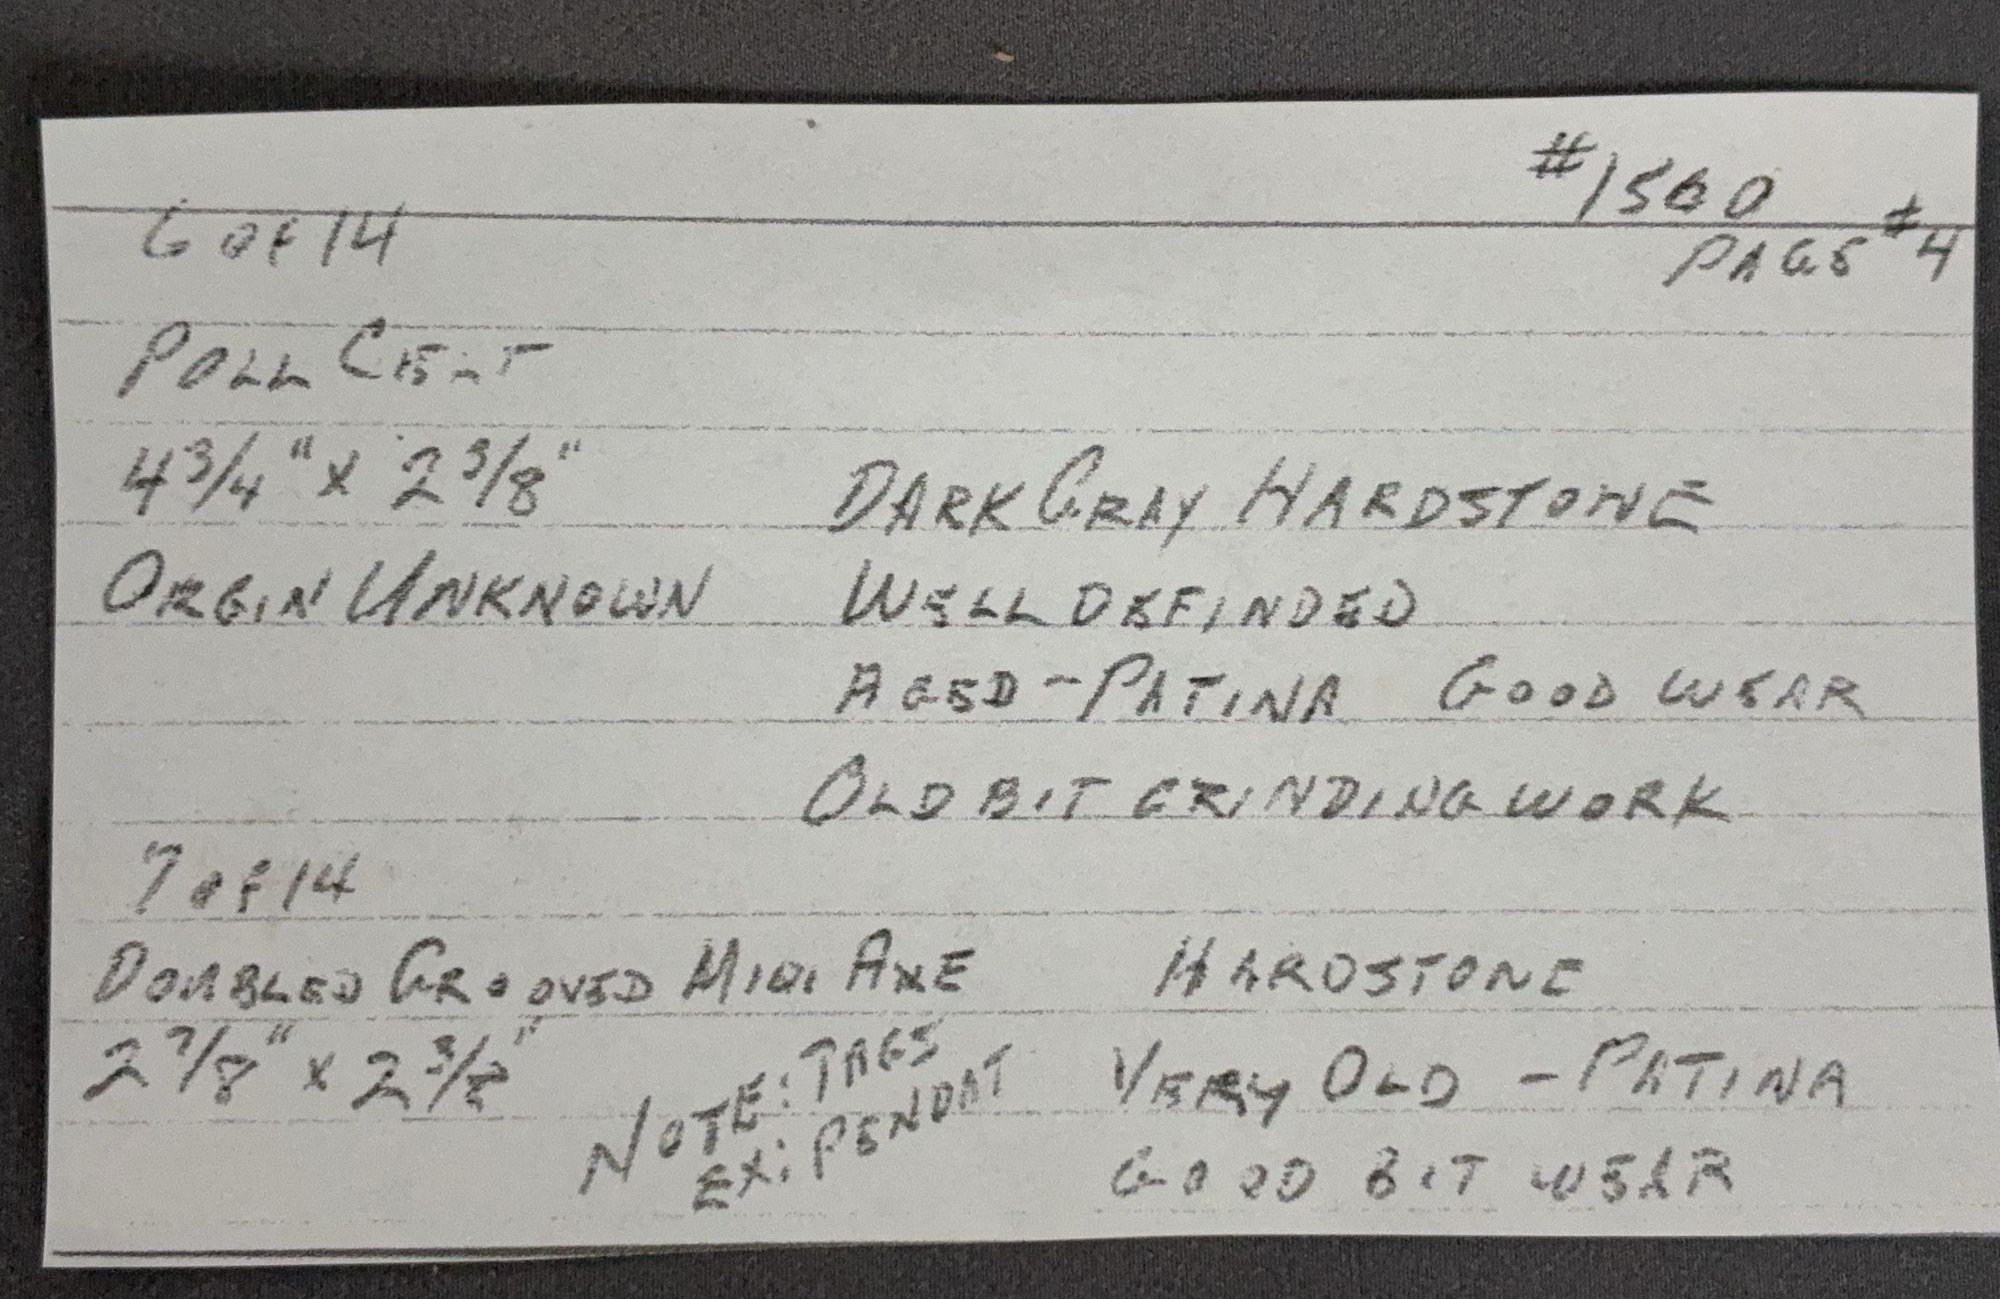 #1560
PAGE #4
6 OF 14
POLL CELT
4 3/4" x 2 3/8"
DARK GRAY HARDSTONE
ORGIN UNKNOWN
WELL DEFINDED
AGED - PATINA GOOD WEAR
OLD BIT GRINDING WORK
7 OF 14
DOUBLED GROOVED MINI AXE
HARDSTONE
2 7/8" x 2 3/8"
NOTE: TAGS
EX: PENDAT
VERY OLD - PATINA
GOOD BIT WEAR